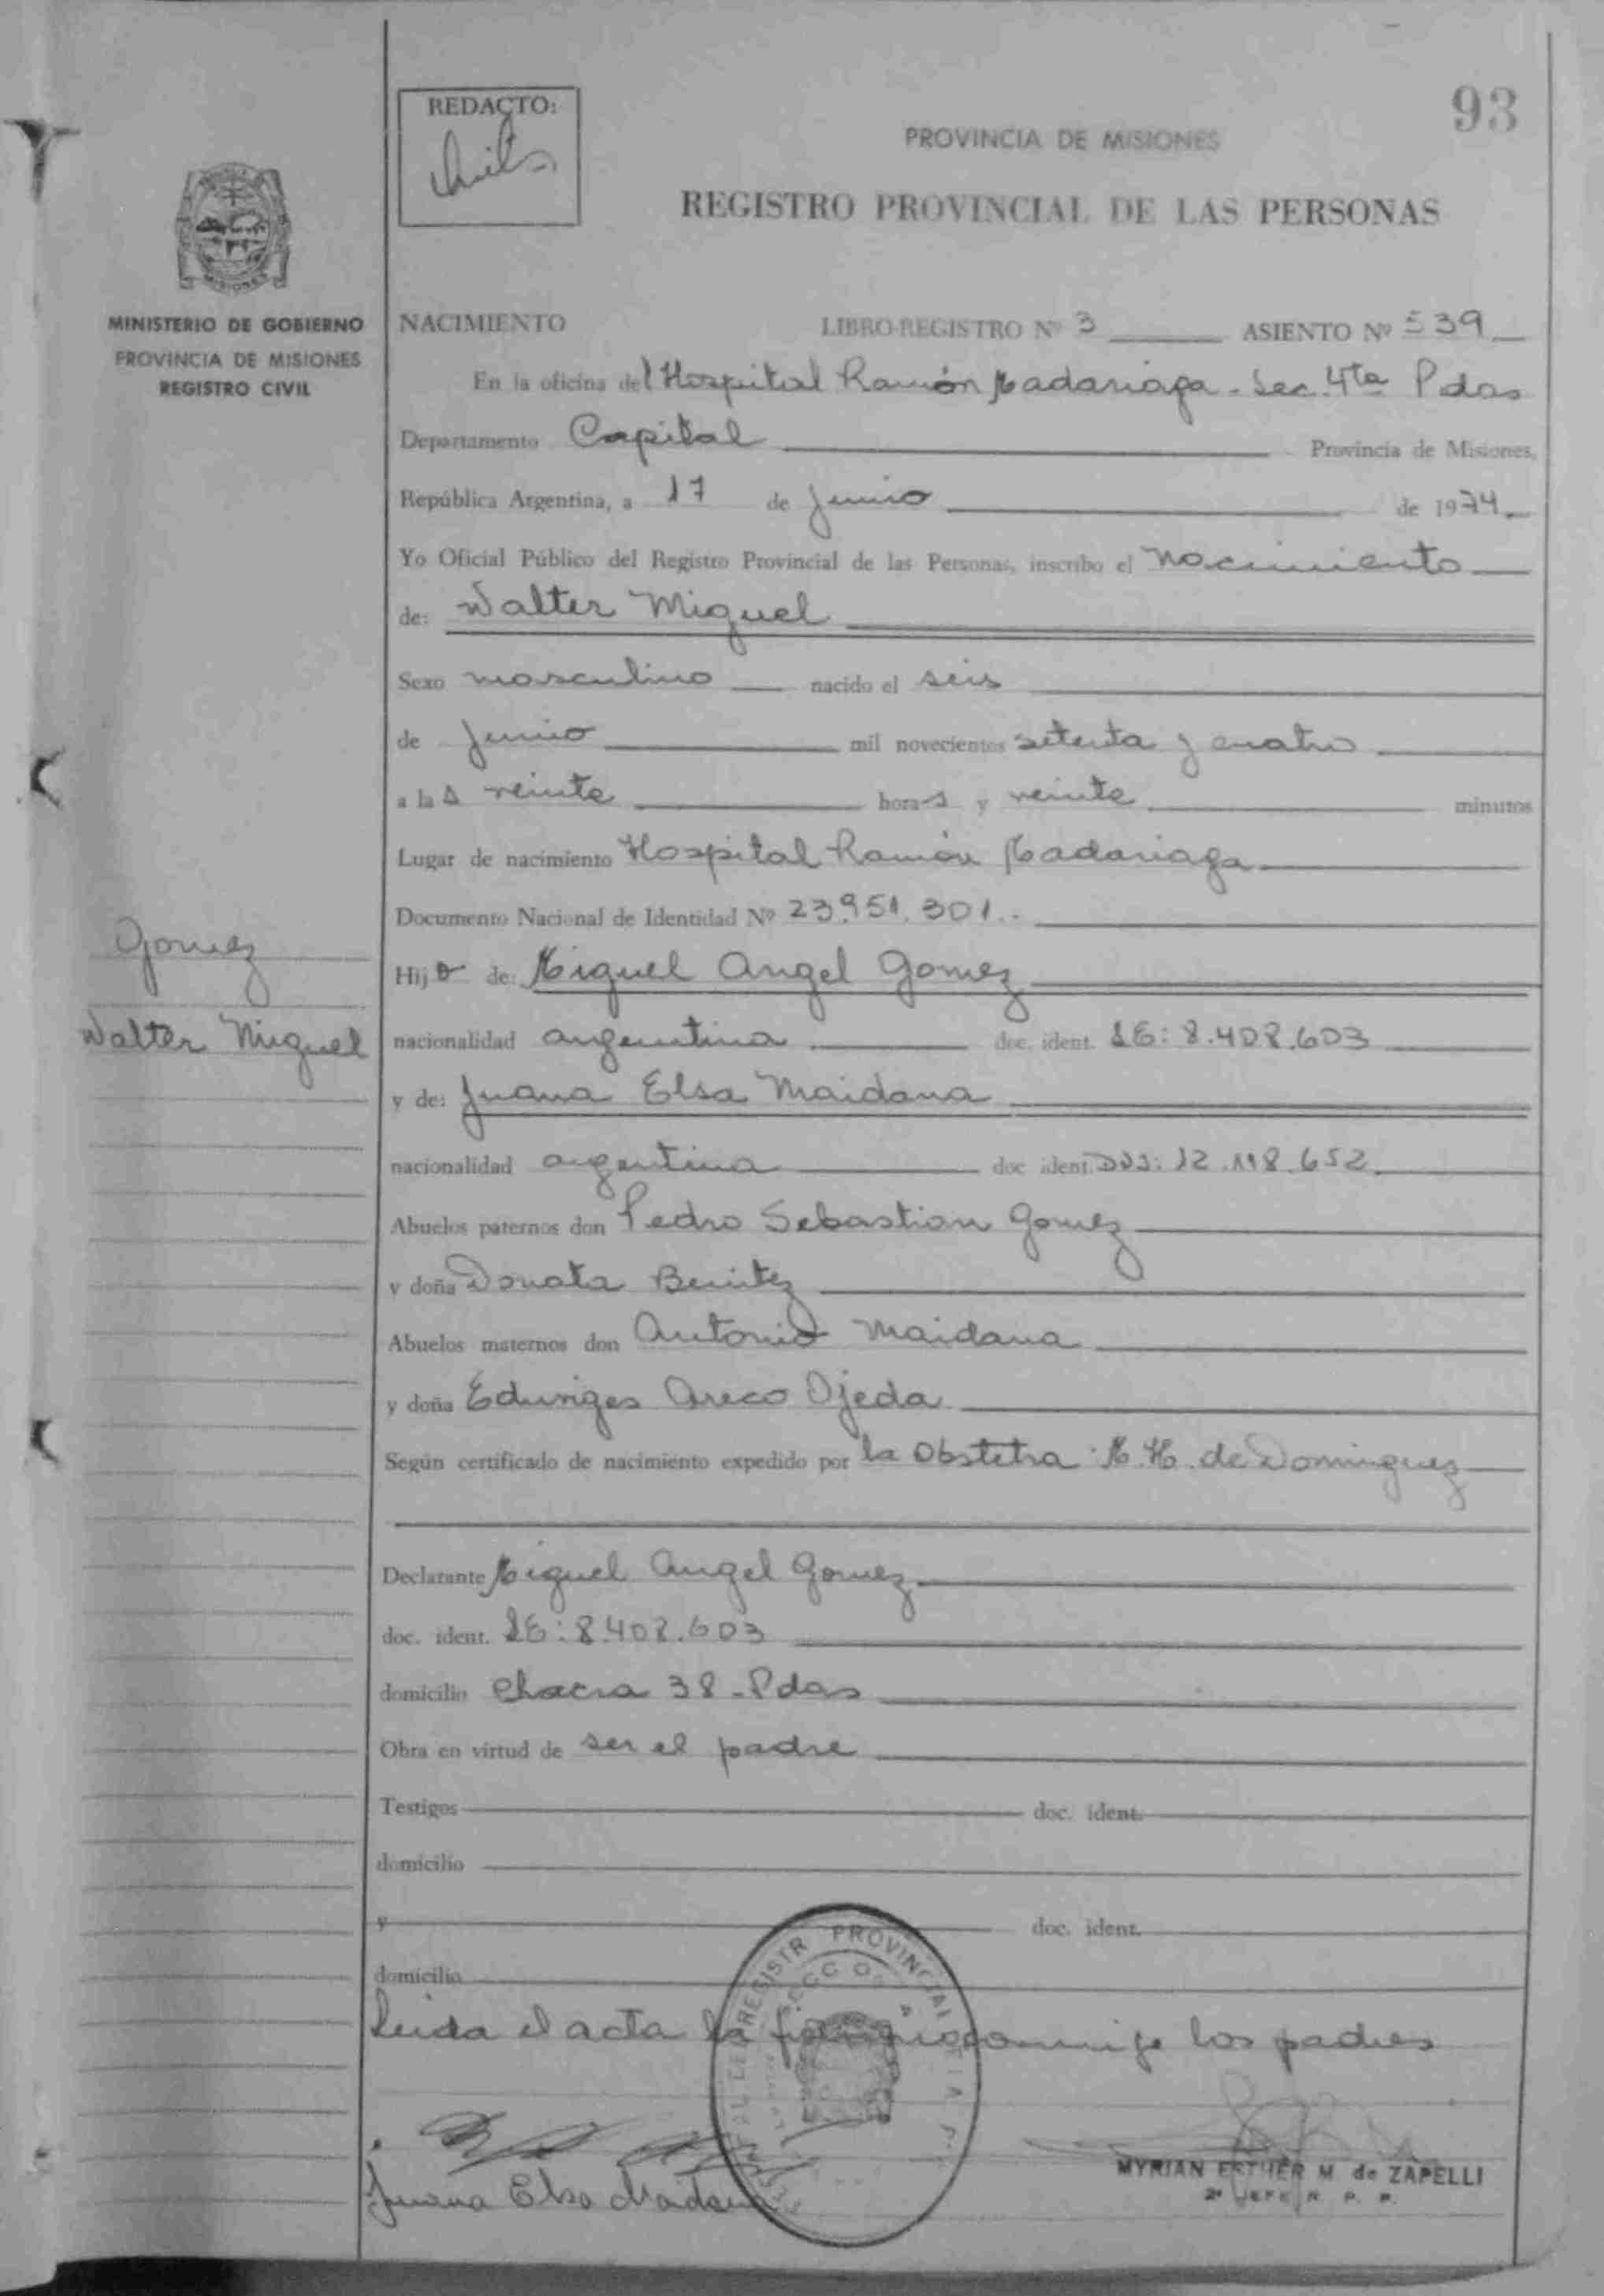 93
REDACTO:
PROVINCIA DE MISIONES
REGISTRO PROVINCIAL DE LAS PERSONAS
MISIONES
MINISTERIO DE GOBIERNO
PROVINCIA DE MISIONES
REGISTRO CIVIL
NACIMIENTO LIBRO-REGISTRO Nº 3 ASIENTO Nº 539
En la oficina del Hospital Ramón Madariaga - Sec. 4ta Pdas
Departamento Capital Provincia de Misiones,
República Argentina, a 17 de Junio de 1974
Yo Oficial Público del Registro Provincial de las Personas, inscribo el nacimiento
de: Walter Miguel
Sexo masculino nacido el seis
de Junio mil novecientos setenta y cuatro
a las veinte horas y veinte minutos
Lugar de nacimiento Hospital Ramón Madariaga
Documento Nacional de Identidad Nº 23.951.301.-
Gomez
Walter Miguel
Hijo de: Miguel Angel Gomez
nacionalidad argentina doc. ident. LE: 8.408.603
y de: Juana Elsa Maidana
nacionalidad argentina doc ident. DNI: 12.118.652
Abuelos paternos don Pedro Sebastian Gomez
y doña Donata Benitez
Abuelos maternos don Antonio Maidana
y doña Eduviges Areco Ojeda
Según certificado de nacimiento expedido por la Obstetra M. H. de Dominguez
Declarante Miguel Angel Gomez
doc. ident. LE: 8.408.603
domicilio Chacra 38 - Pdas
Obra en virtud de ser el padre
Testigos doc. ident.
domicilio
y doc. ident.
domicilio
Leida el acta la conmigo los padres
REGISTR PROVINCIAL
Juana Elsa Maidana
MYRIAN ESTHER M de ZAPELLI
2º JEFE R. P. P.